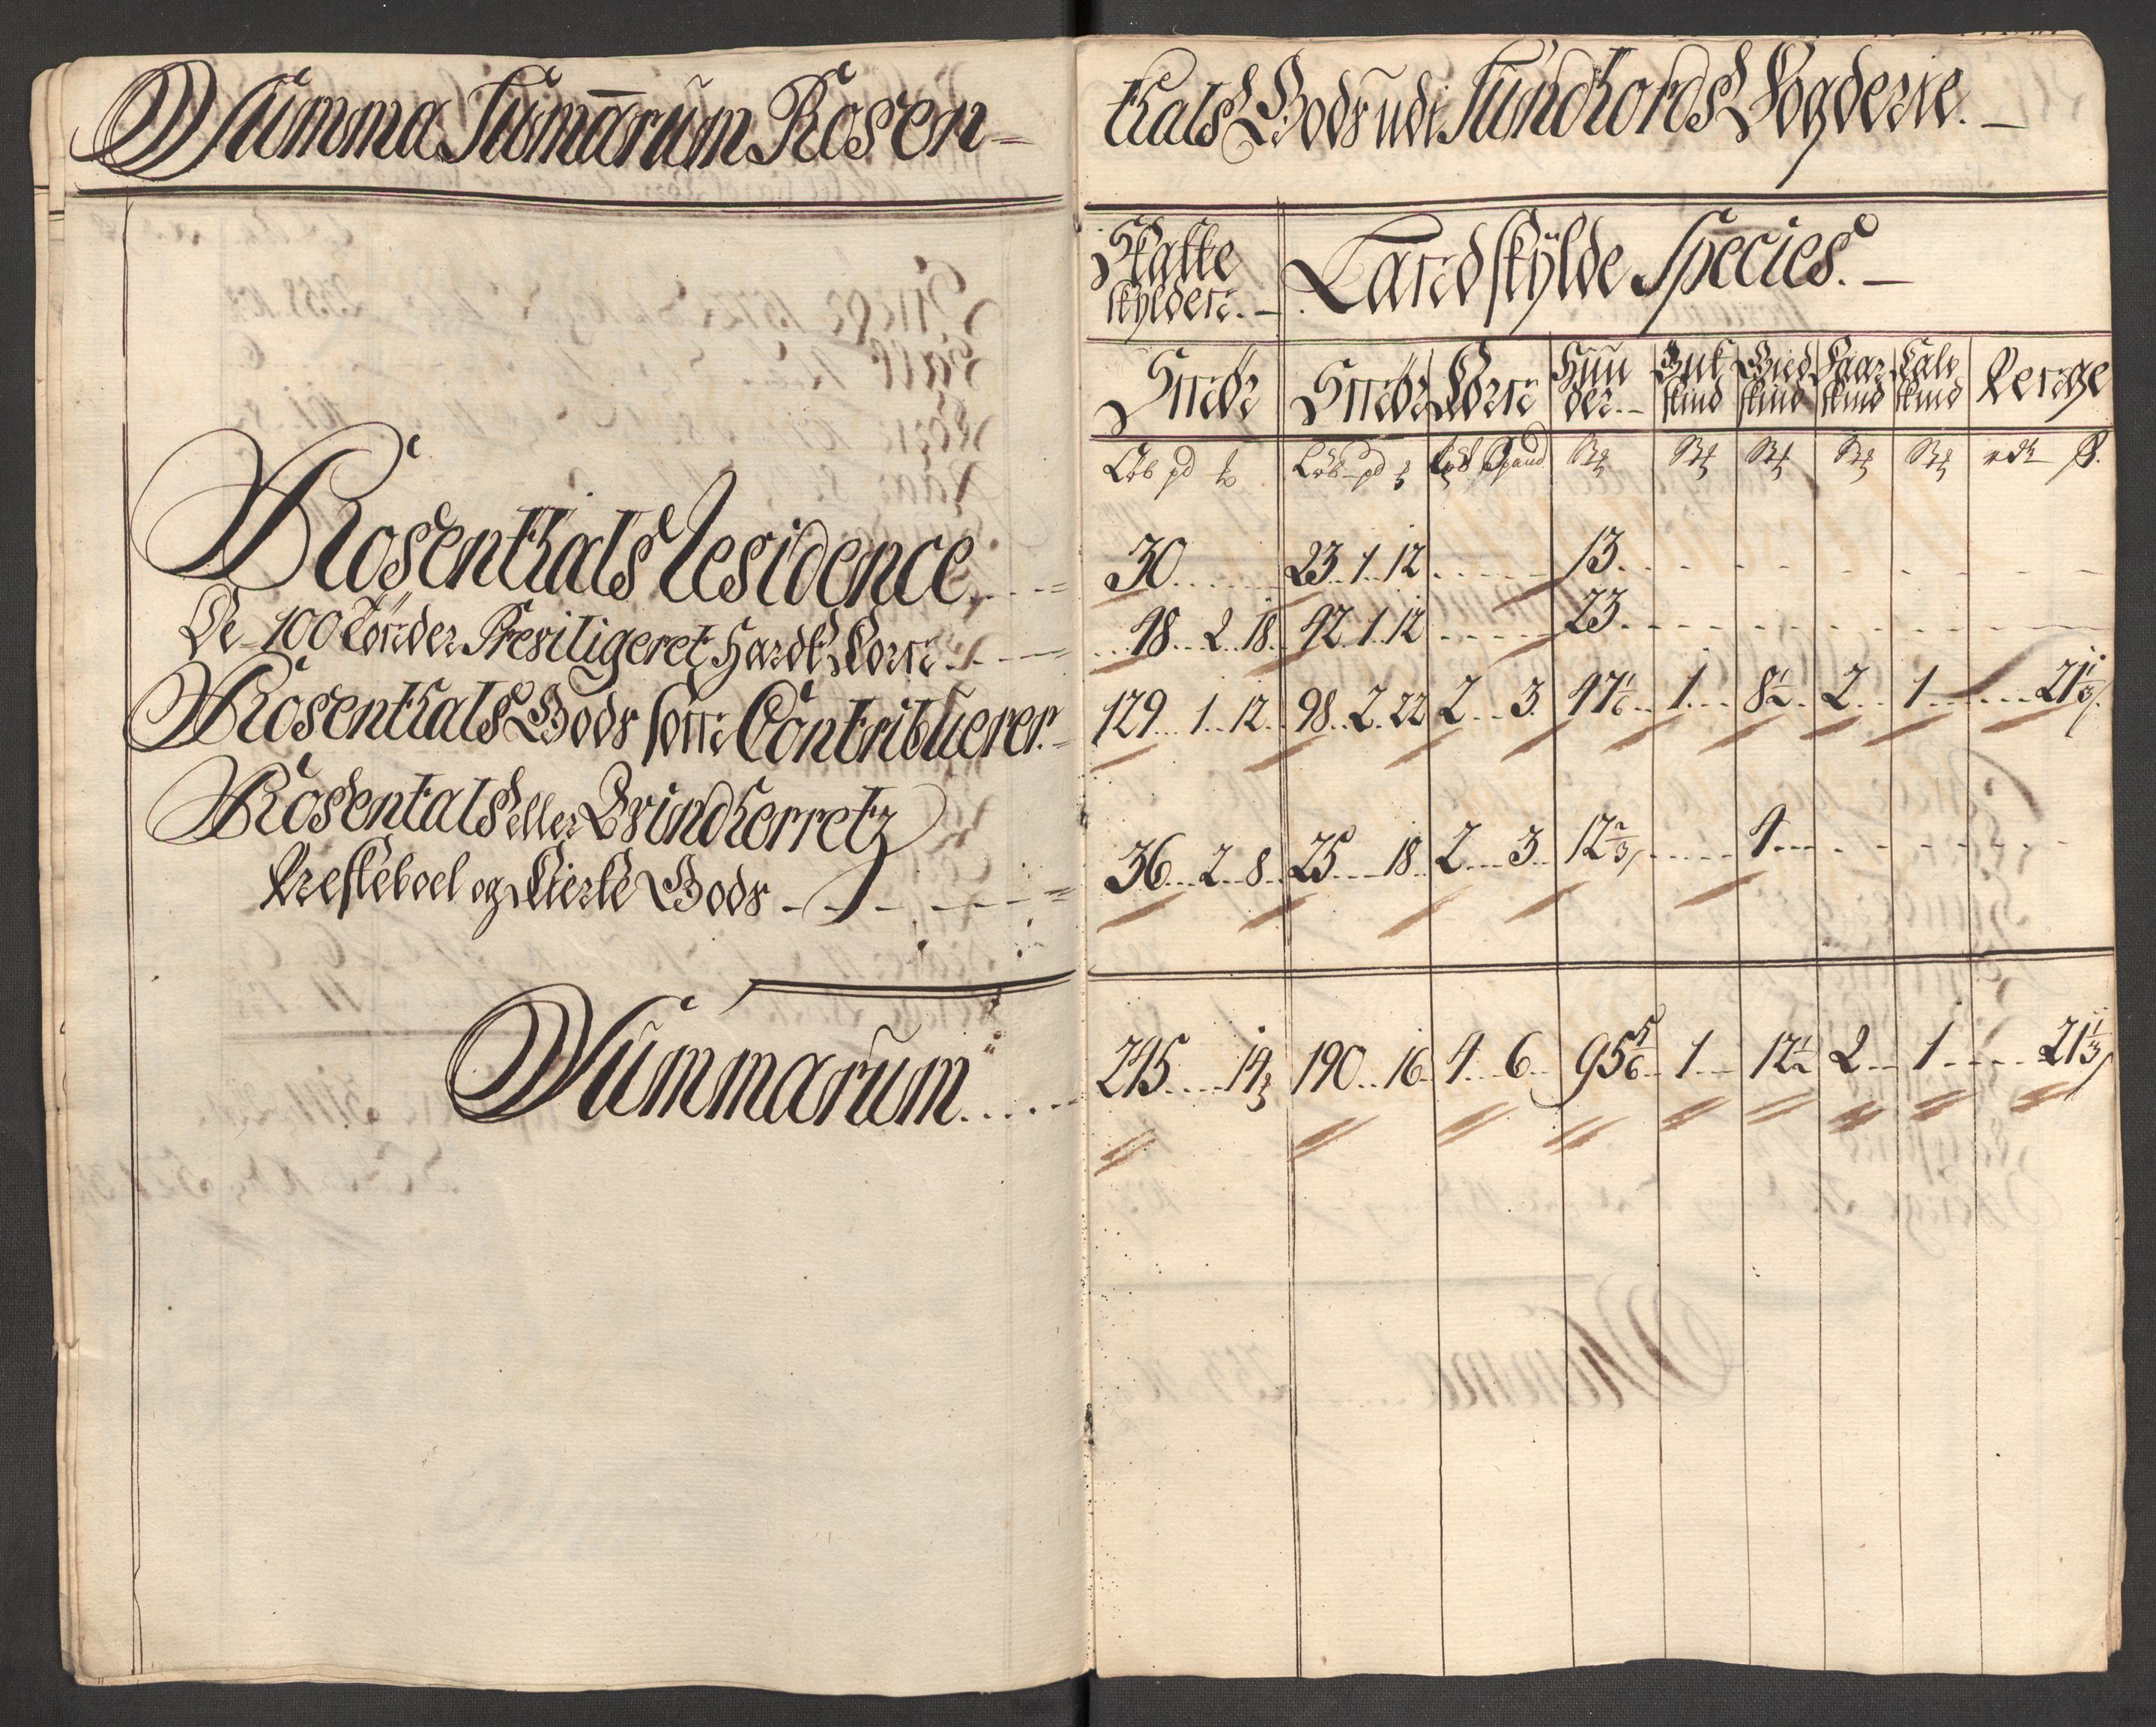 Summa Summarum Rosen-
thals Gods udi Sundhords Fogderie.
Skatte
skylden.
Landskylde Species.
Smör
Smör Korn Huu
der. Buk
skind Gied
skind Faar
skind Kalv
skind Penge
Løb pd ℔ Løb pd ℔ Løb Spand St St St St St rdr ß.
Rosenthals Residence 30 23. 1. 12 13.
De 100 Tönder Previligeret Hardt Korn 48. 2. 18. 42. 1. 12 23.
Rosenthals Gods som Contribuerer. 129. 1. 12. 98. 2. 22 2. 3. 47 1/6 1. 8 1/2. 2. 1. 21 1/3
Rosentals eller Qvindherretz
Presteboel og Kierke Gods 36. 2. 8. 25. 18. 2. 3. 12 2/3 4.
Summarum 245. 14 190. 16. 4. 6. 95 5/6 1. 12 1/2 2. 1. 21 1/3